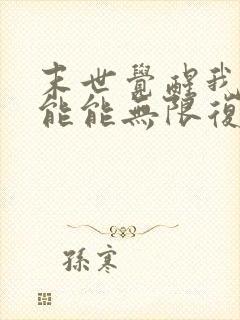 末世覺醒我
能能無限復
孫寒